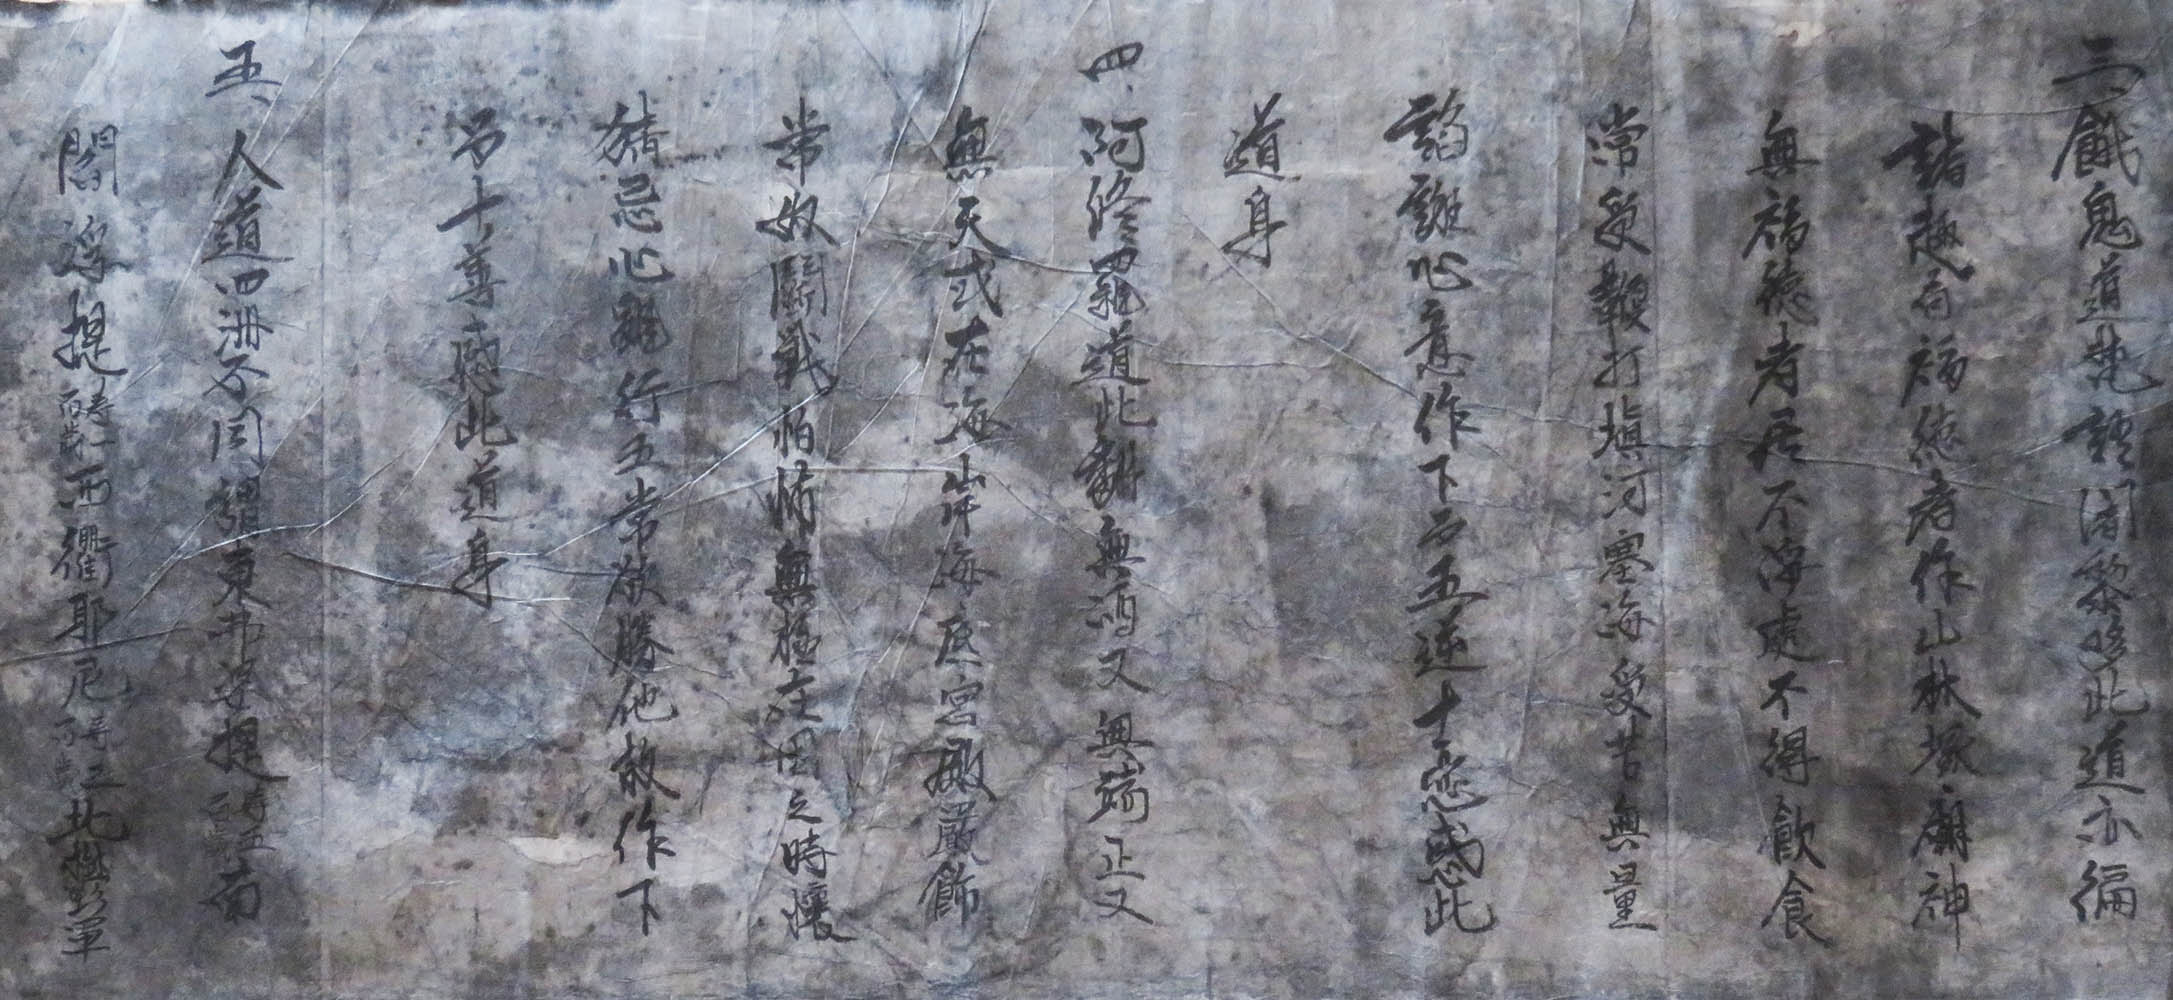 三、餓鬼道梵語闍黎哆此道亦徧
諸趣有福德者作山林塚廟神
無福德者居不淨處不得飲食
常受鞭打填河塞海受苦無量
諂誑心意作下品五逆十惡感此
道身
四、阿修羅道此翻無酒又無端正又
無天或在海岸海底宮殿嚴飾
常好鬪戰怕怖無極在因之時懷
猜忌心雖行五常欲勝他故作下
品十善感此道身
五、人道四洲不同謂東弗婆提壽五百歲南
閻浮提壽一百歲西瞿耶尼壽二百五十歲北鬱單